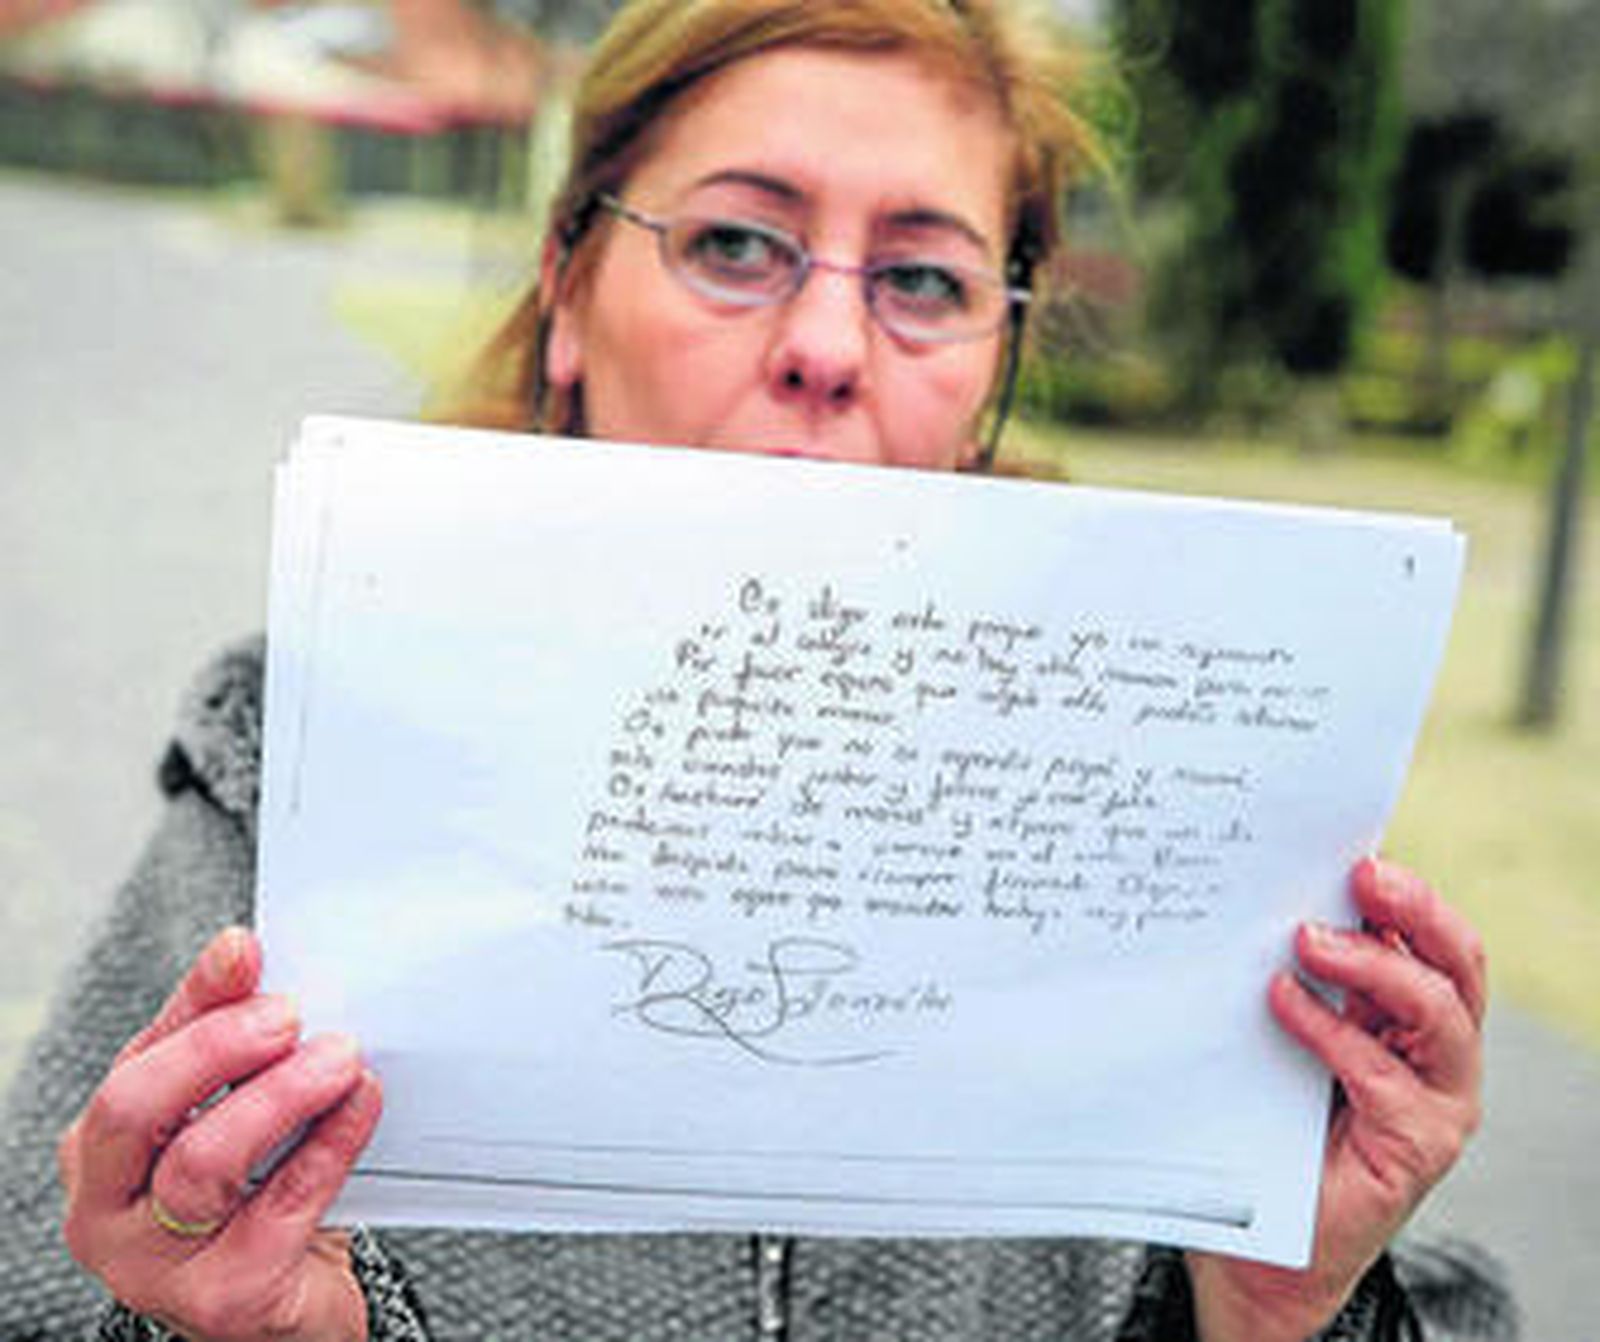 Os digo esto porque yo no aguanto
ir al colegio y no hay otra manera para no ir
Por favor espero que algún día podáis odiarme
un poquito menos.
Os pido que no os separéis papá y mamá,
sólo viéndoos juntos y felices yo seré feliz.
Os echaré de menos y espero que un día
podamos volver a vernos en el cielo. Bueno,
me despido para siempre. Firmado Diego
espero que encuentres trabajo muy pronto
Tata.
Diego González